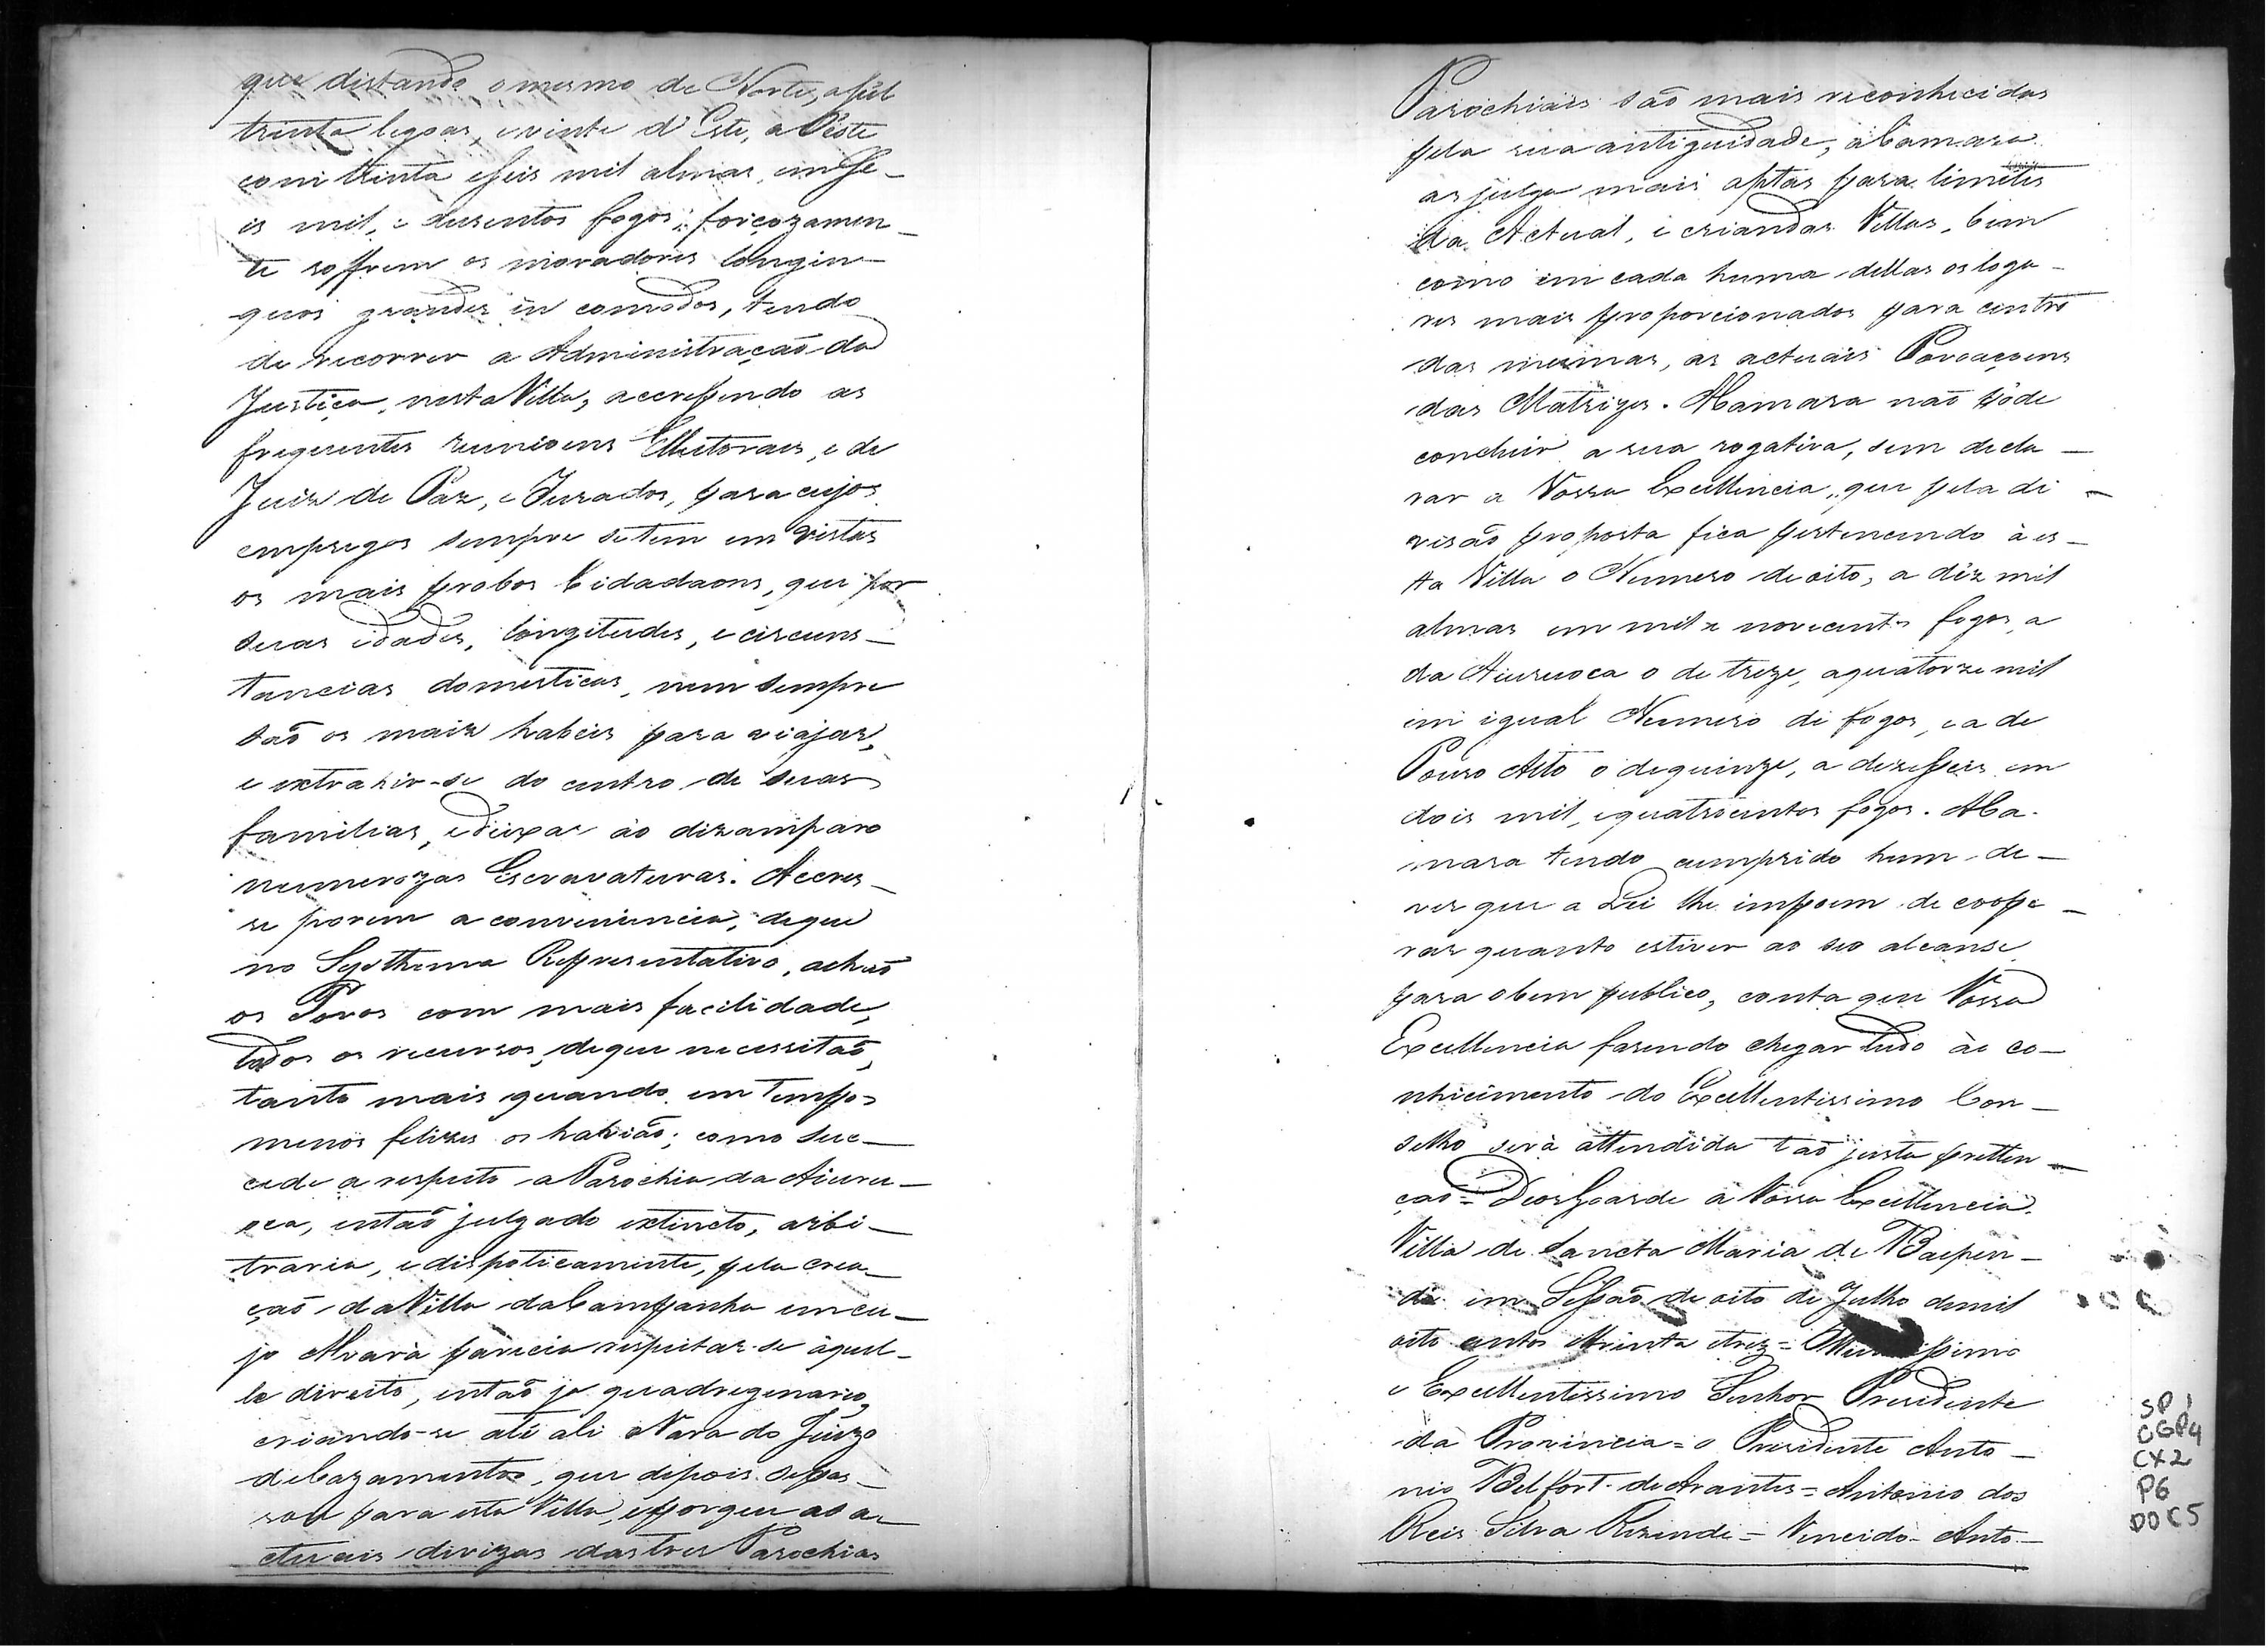 que distando o mesmo de Norte, a Sul
trinta legoas, e vinte d'Este, a Oeste
com trinta e Seis mil almas, em Se-
is mil, e dusentos fogos; forçozamen-
te soffrem os moradores longin-
quos grandes in comodos, tendo
de recorrer a Administração da
Justiça, nesta Villa, accressendo as
frequentes reunioens Elleitoraes, e de
Juiz de Paz, e Jurados, para cujos
empregos sempre se tem em vistas
os mais probos Cidadaons, que por
suas idades, longitudes, e circuns-
tancias domesticas, nem sempre
são os mais habeis para viajar,
e extrahir-se do centro de suas
familias, e deixar ao dizamparo
numerozas Escravaturas. Acres-
se porem a conveniencia, de que
no Systhema Representativo, achão
os Povos com mais facilidade,
todos os recursos, de que necessitão,
tanto mais quando em tempos
menos felizes os havião; como suc-
cede a respeito a Parochia da Aiuru-
oca, então julgado extincto, arbi-
traria, e dispoticamente, pela crea-
ção da Villa da Campanha em cu-
jo Alvará parecia respeitar-se áquel-
le direito, então ja quadregenario,
criando-se até ali Vara do Juizo
de Cazamentos, que depois se pas-
sou para esta Villa, e porque as a-
ctuais divizas das tres Parochias
Parochiais são mais reconhecidas
pela sua antiguidade, a Camara
as julga mais aptas para limites
da Actual, e criandas Villas, bem
como em cada huma dellas os loga-
res mais proporcionados para centro
das mesmas, as actuais Povoaçoens
das Matrizes. A Camara não póde
concluir a sua rogativa, sem decla-
rar a Vossa Excellencia, que pela di-
visão proposta fica pertencendo á es-
ta Villa o Numero de oito, a dêz mil
almas em mil e novecentos fogos, a
da Aiuruoca o de treze, a quatorze mil
em igual Numero de fogos, e a de
Pouso Alto o de quinze, a dezesseis em
dois mil, e quatrocentos fogos. A Ca-
mara tendo cumprido hum de-
ver que a Lei lhe impoem de coope-
rar quanto estiver ao seo alcanse
para o bem publico, conta que Vossa
Excellencia fasendo chegar tudo ào co-
nhecimento do Excellentissimo Con-
selho será attendida tão justa pretten-
ção = Deos Goarde a Vossa Excellencia.
Villa de Sancta Maria de Baepen-
di em Sessão de oito de Julho de mil
oito centos trinta e trez =
e Excellentissimo Senhor Presidente
da Provincia = o Presidente Anto-
nio Belfort de Arantes = Antonio dos
Reis Silva Rezende = Vencido - Anto-
SP 1
CGP4
CX2
P6
DOC5